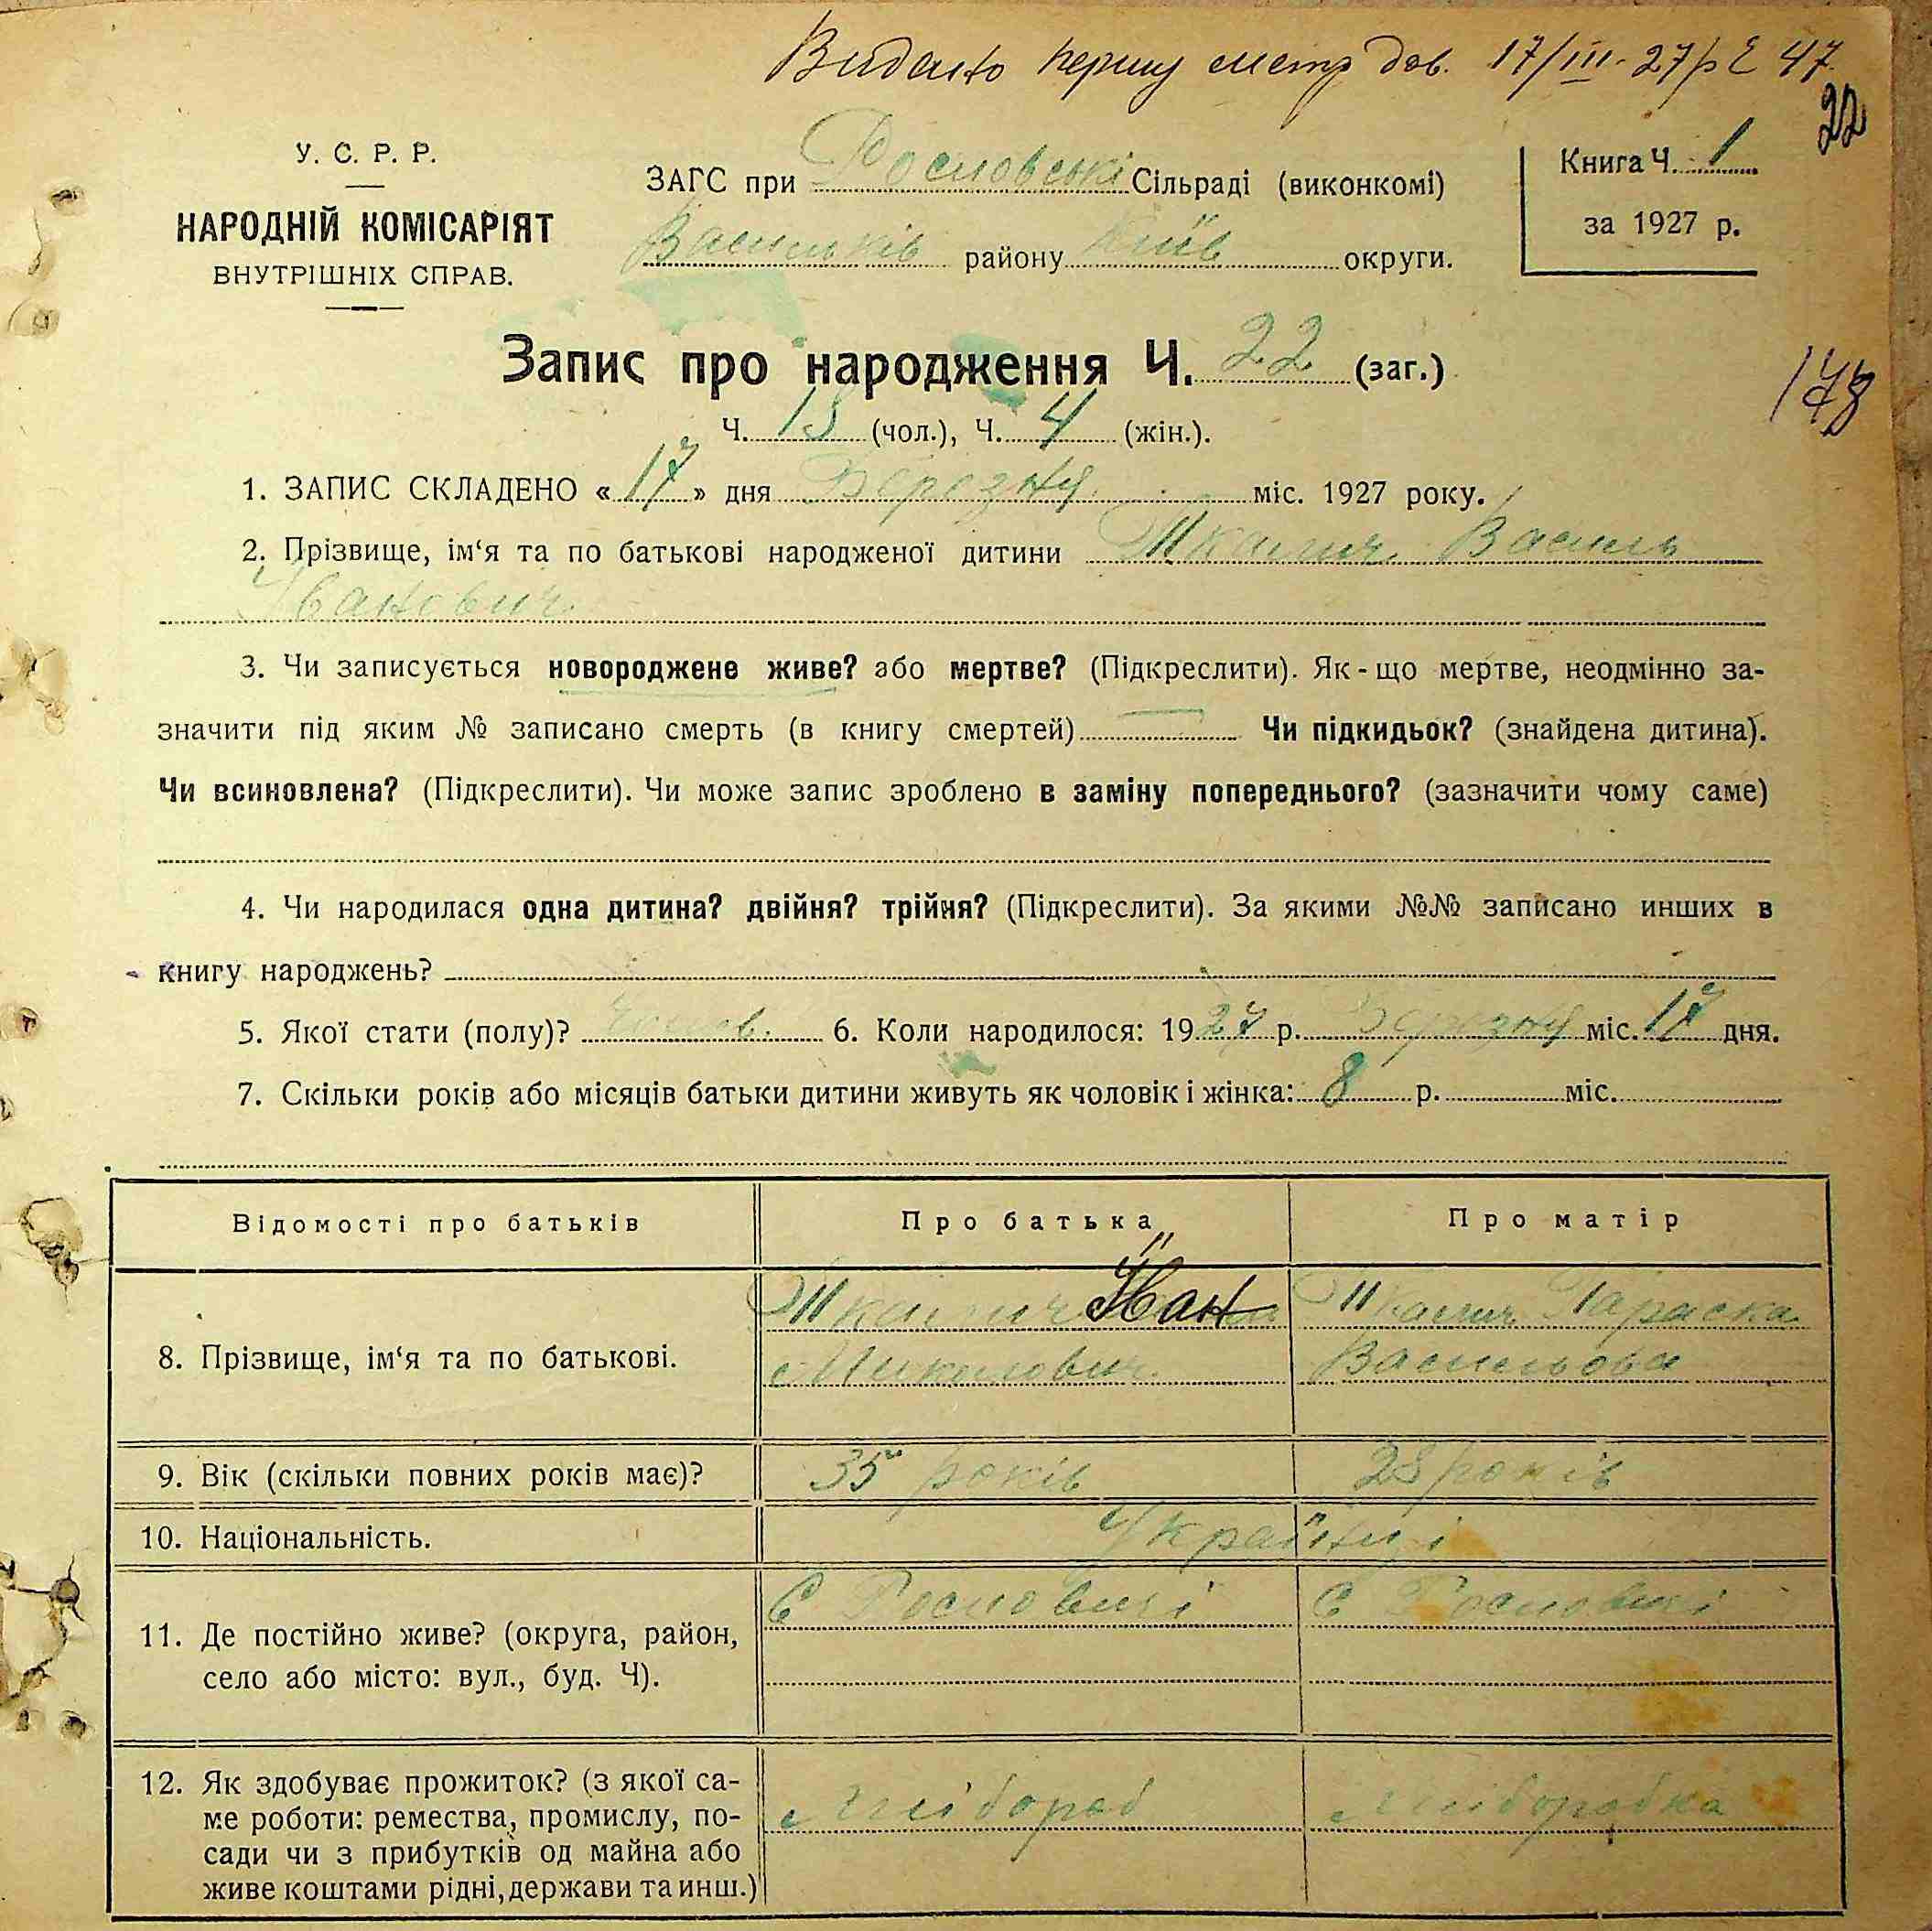 Видано першу метр дов. 17/III-27 р 47
22
У. С. Р. Р.
НАРОДНІЙ КОМІСАРІЯТ
ВНУТРІШНІХ СПРАВ.
ЗАГС при Рословській Сільраді (виконкомі)
Васильків району Київ округи.
Книга Ч. 1
за 1927 р.
Запис про народження Ч. 22 (заг.)
178
Ч. 18 (чол.), Ч. 4 (жін.).
1. ЗАПИС СКЛАДЕНО «17» дня Березня міс. 1927 року.
2. Прізвище, ім‘я та по батькові народженої дитини Ткалич Василь
Іванович.
3. Чи записується новороджене живе? або мертве? (Підкреслити). Як-що мертве, неодмінно за-
значити під яким № записано смерть (в книгу смертей) — Чи підкидьок? (знайдена дитина).
Чи всиновлена? (Підкреслити). Чи може запис зроблено в заміну попереднього? (зазначити чому саме)
4. Чи народилася одна дитина? двійня? трійня? (Підкреслити). За якими №№ записано инших в
книгу народжень?
5. Якої стати (полу)? Чолов. 6. Коли народилося: 1927 р. Березня міс. 17 дня.
7. Скільки років або місяців батьки дитини живуть як чоловік і жінка: 8 р. міс.
Відомості про батьків Про батька Про матір
8. Прізвище, ім‘я та по батькові. Ткалич Іван Ткалич Параска
Миколович Васильова
9. Вік (скільки повних років має)? 35 років 28 років
10. Національність. Українці
11. Де постійно живе? (округа, район, С Рословичі С Рословичі
село або місто: вул., буд. Ч).
12. Як здобуває прожиток? (з якої са-
ме роботи: ремества, промислу, по- хлібороб хлеборобка
сади чи з прибутків од майна або
живе коштами рідні, держави та инш.)